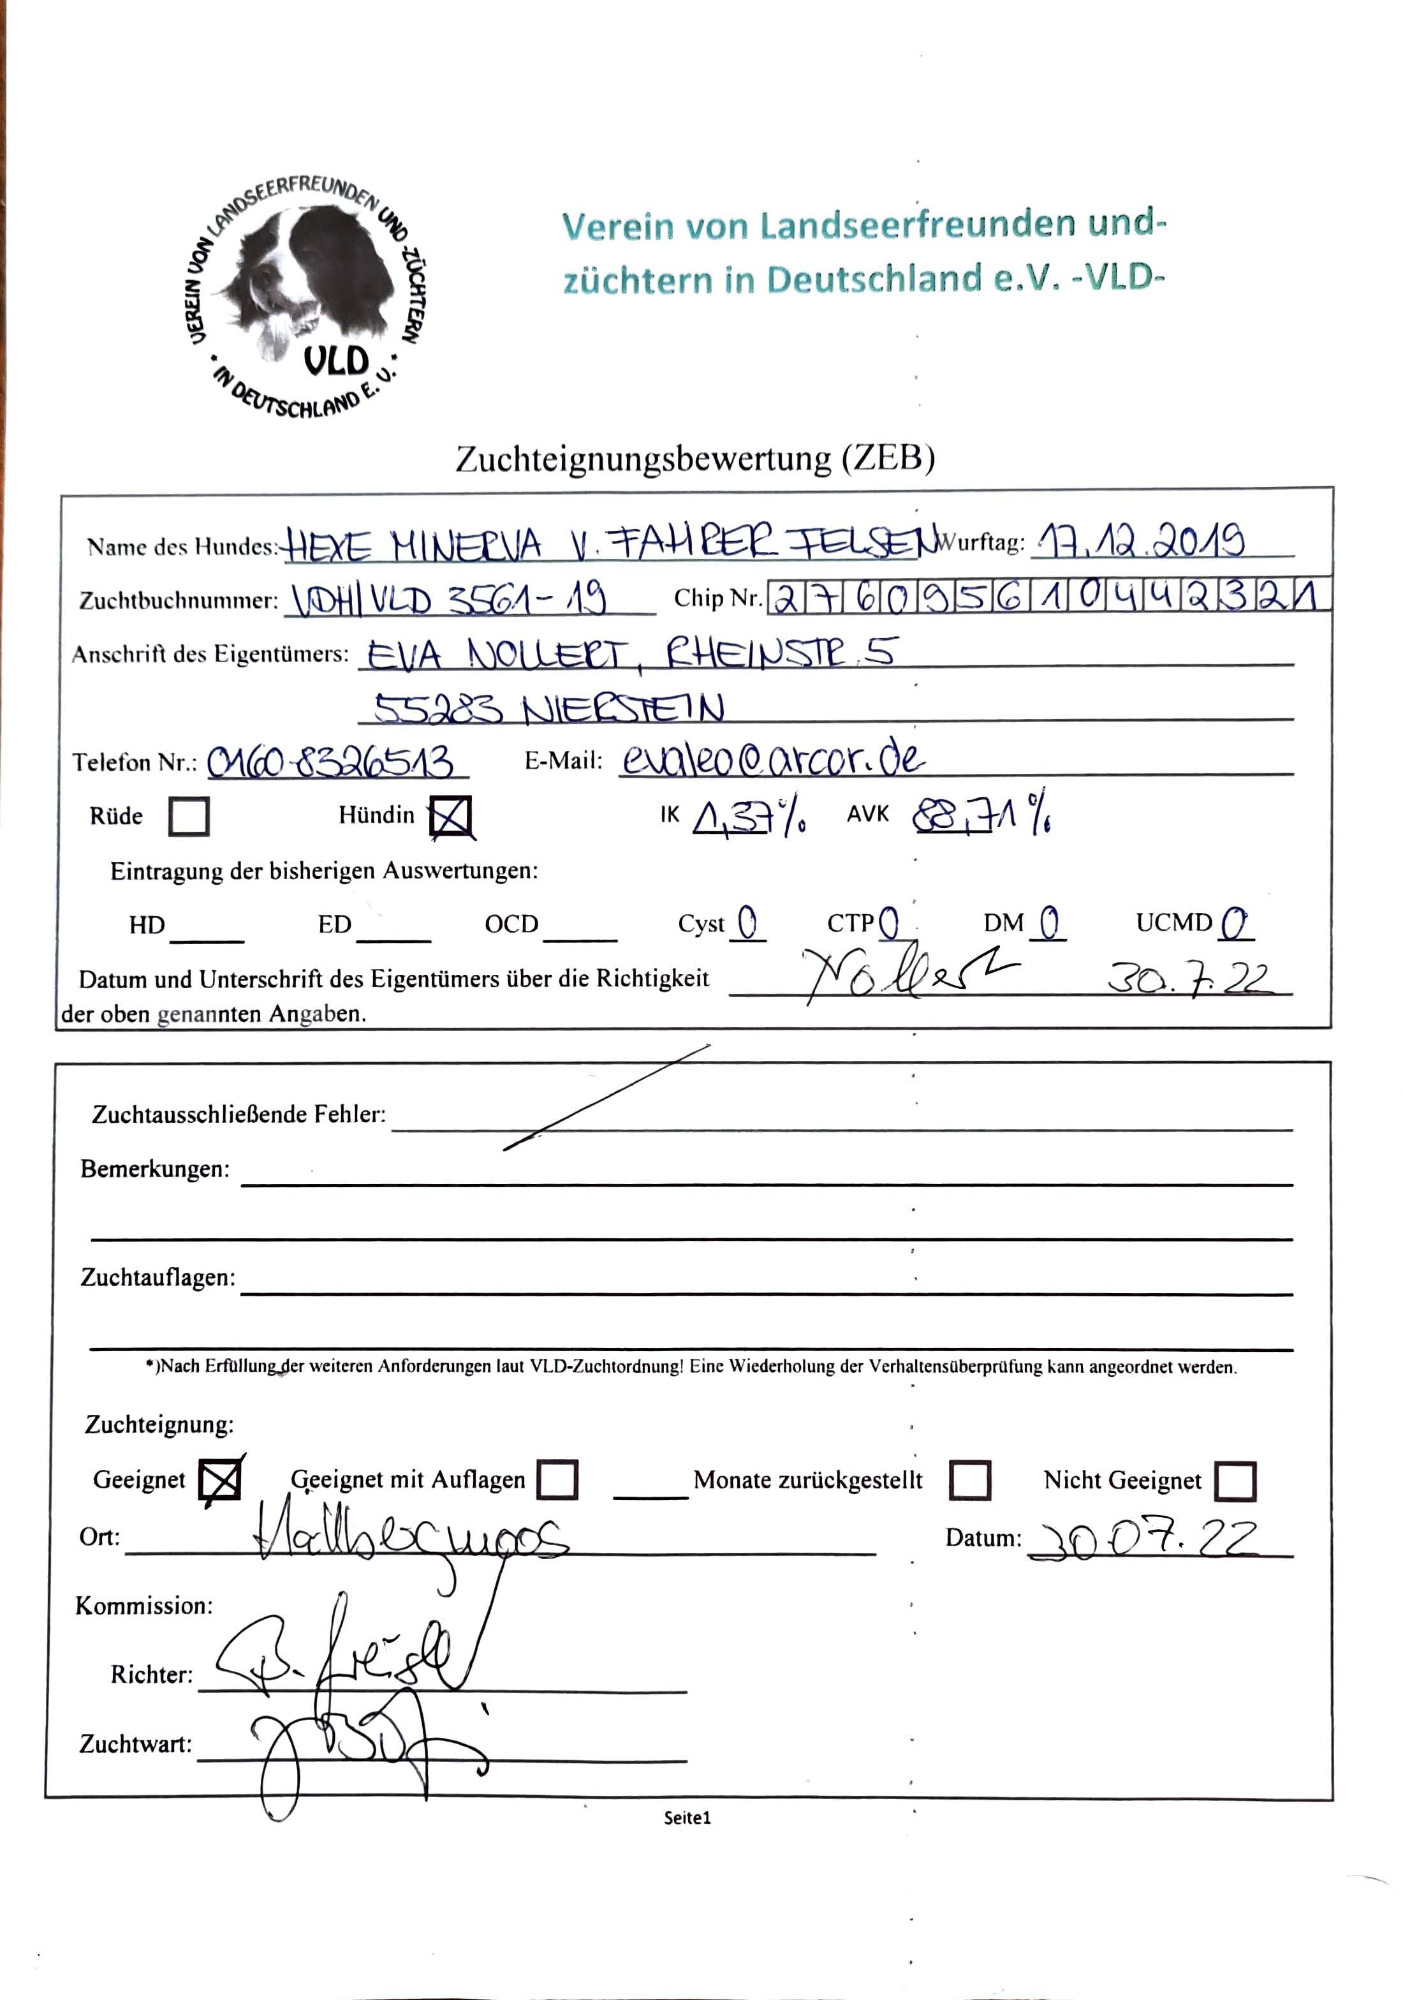 VEREIN VON LANDSEERFREUNDEN UND -ZÜCHTERN
* IN DEUTSCHLAND E. V. *
VLD
Verein von Landseerfreunden und-
züchtern in Deutschland e.V. -VLD-
Zuchteignungsbewertung (ZEB)
Name des Hundes: HEXE MINERVA V. FAHRER FELSEN Wurftag: 17.12.2019
Zuchtbuchnummer: VDH/VLD 3561-19 Chip Nr. 276095610442321
Anschrift des Eigentümers: EVA NOLLERT, RHEINSTR. 5
55283 NIERSTEIN
Telefon Nr.: 0160-8326513 E-Mail: evaleo@arcor.de
Rüde Hündin X IK 1,37% AVK 88,71%
Eintragung der bisherigen Auswertungen:
HD ED OCD Cyst 0 CTP 0 DM 0 UCMD 0
Datum und Unterschrift des Eigentümers über die Richtigkeit Nollert 30.7.22
der oben genannten Angaben.
Zuchtausschließende Fehler:
Bemerkungen:
Zuchtauflagen:
*)Nach Erfüllung der weiteren Anforderungen laut VLD-Zuchtordnung! Eine Wiederholung der Verhaltensüberprüfung kann angeordnet werden.
Zuchteignung:
Geeignet X Geeignet mit Auflagen Monate zurückgestellt Nicht Geeignet
Ort: Hallbergmoos Datum: 30.07.22
Kommission:
Richter:
Zuchtwart:
Seite1